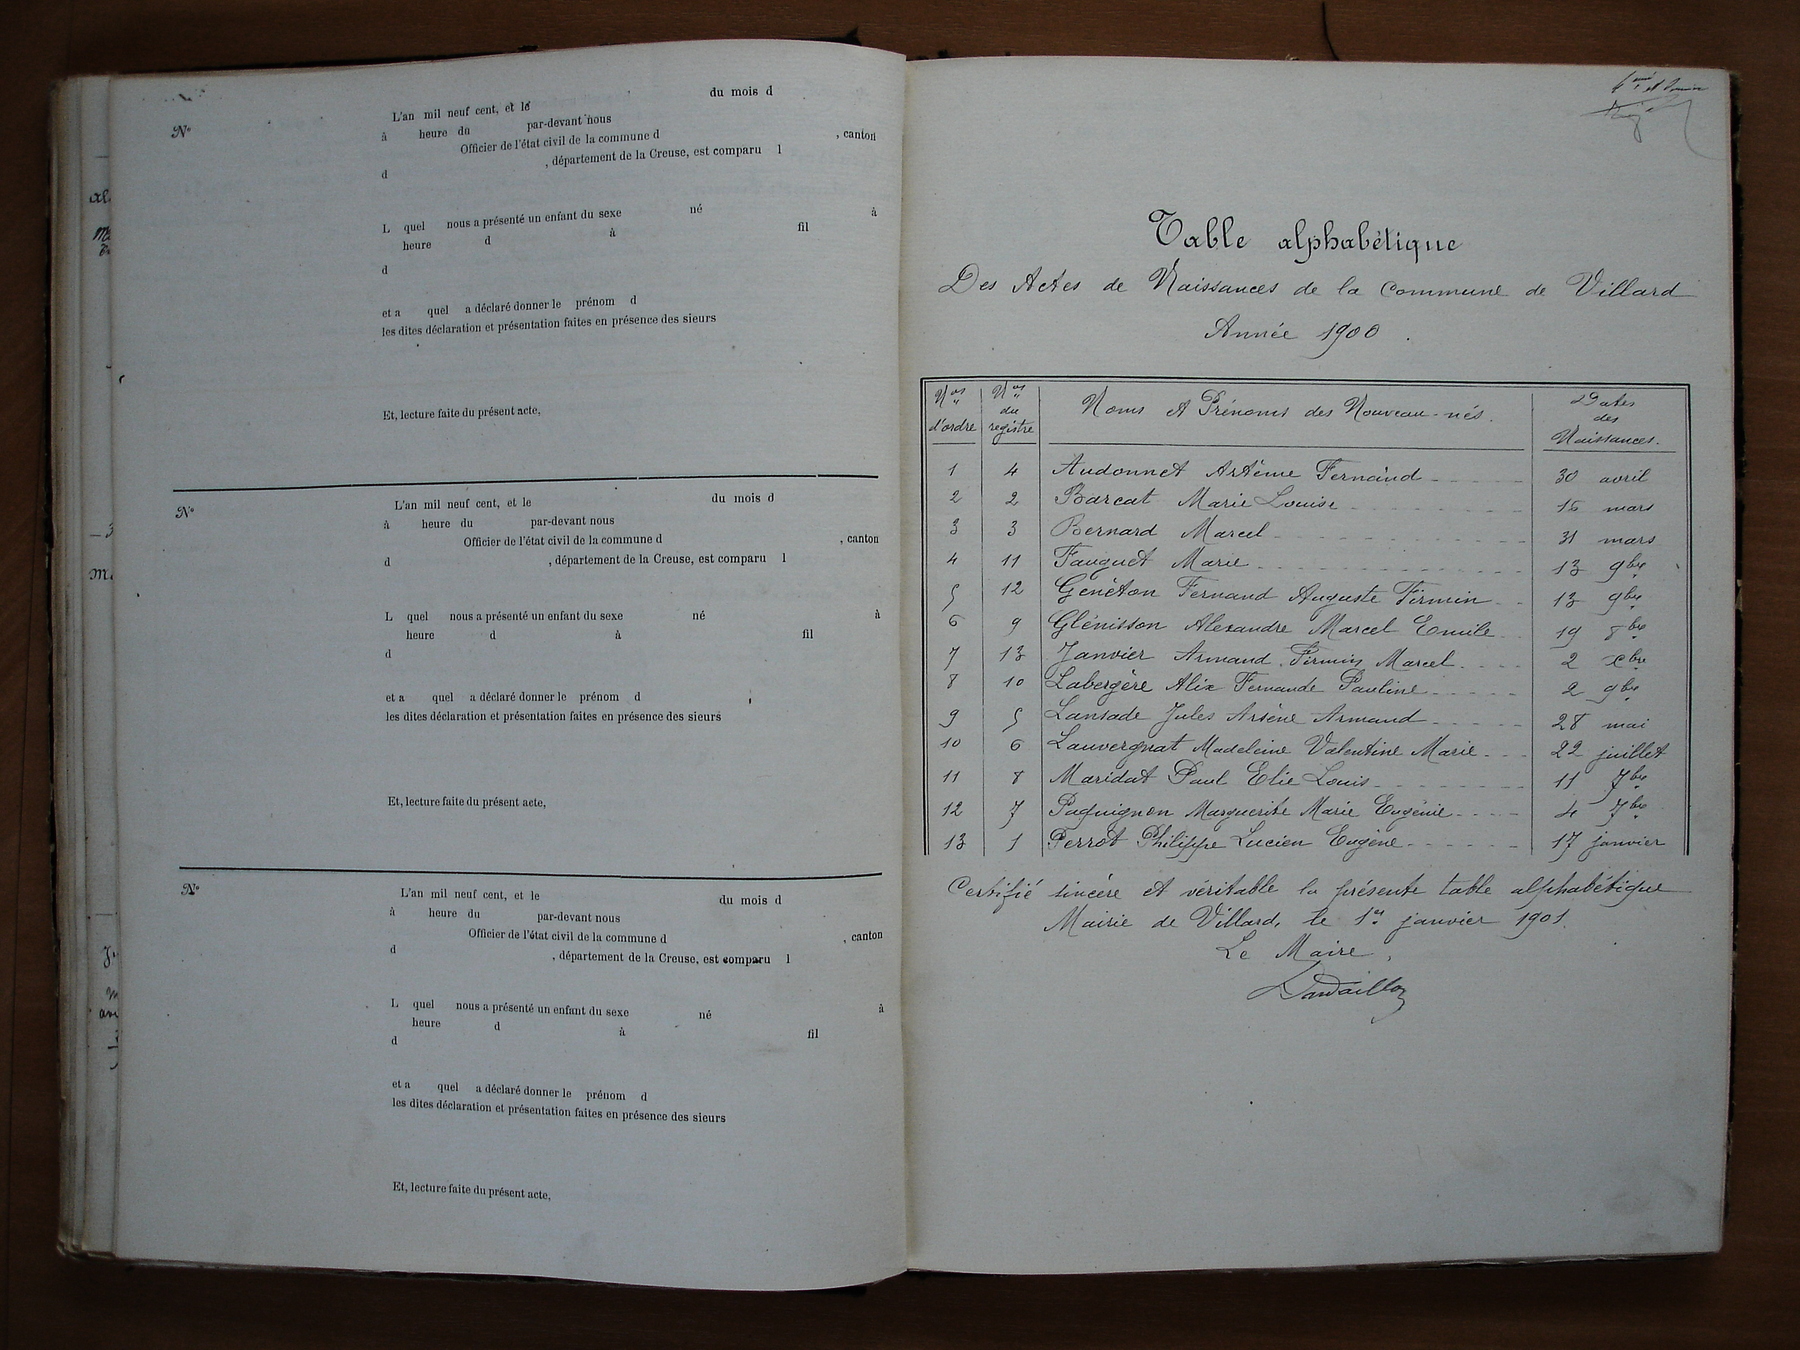 du mois d
L'an mil neuf cent, et le
N°
à heure du par-devant nous
Officier de l'état civil de la commune d , canton
d , département de la Creuse, est comparu l
L quel nous a présenté un enfant du sexe né à
heure d à fil
d
et a quel a déclaré donner le prénom d
les dites déclaration et présentation faites en présence des sieurs
Et, lecture faite du présent acte,
N°
L'an mil neuf cent, et le du mois d
à heure du par-devant nous
Officier de l'état civil de la commune d , canton
d , département de la Creuse, est comparu l
L quel nous a présenté un enfant du sexe né à
heure d à fil
d
et a quel a déclaré donner le prénom d
les dites déclaration et présentation faites en présence des sieurs
Et, lecture faite du présent acte,
N°
L'an mil neuf cent, et le du mois d
à heure du par-devant nous
Officier de l'état civil de la commune d , canton
d , département de la Creuse, est comparu l
L quel nous a présenté un enfant du sexe né à
heure d à fil
d
et a quel a déclaré donner le prénom d
les dites déclaration et présentation faites en présence des sieurs
Et, lecture faite du présent acte,
Table alphabétique
Des Actes de Naissances de la Commune de Villard
Année 1900.
Nos d'ordre Nos du registre Noms et Prénoms des Nouveau-nés. Dates des Naissances.
1 4 Audonnet Artème Fernand 30 avril
2 2 Barcat Marie Louise 15 mars
3 3 Bernard Marcel 31 mars
4 11 Fauguet Marie 13 9bre
5 12 Généton Fernand Auguste Firmin 13 9bre
6 9 Glénisson Alexandre Marcel Emile 19 8bre
7 13 Janvier Armand Firmin Marcel 2 xbre
8 10 Labergère Alix Fernande Pauline 2 9bre
9 5 Lansade Jules Arsène Armand 28 mai
10 6 Lauvergnat Madeleine Valentine Marie 22 juillet
11 8 Maridat Paul Elie Louis 11 7bre
12 7 Paquignon Marguerite Marie Eugénie 4 7bre
13 1 Perrot Philippe Lucien Eugène 17 janvier
Certifié sincère et véritable la présente table alphabétique
Mairie de Villard, le 1er janvier 1901.
Le Maire,
Dardaillon